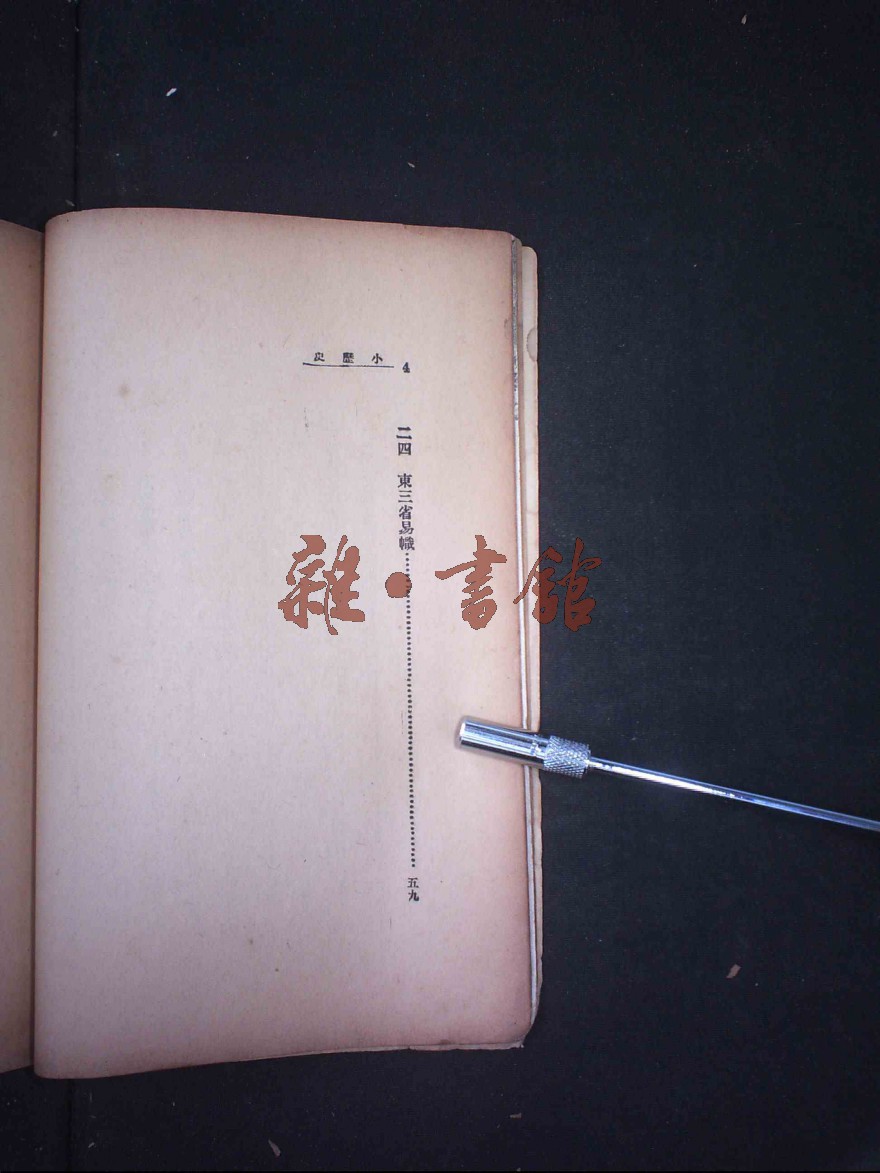 4 小歷史
二四 東三省易幟……五九
雜·書館